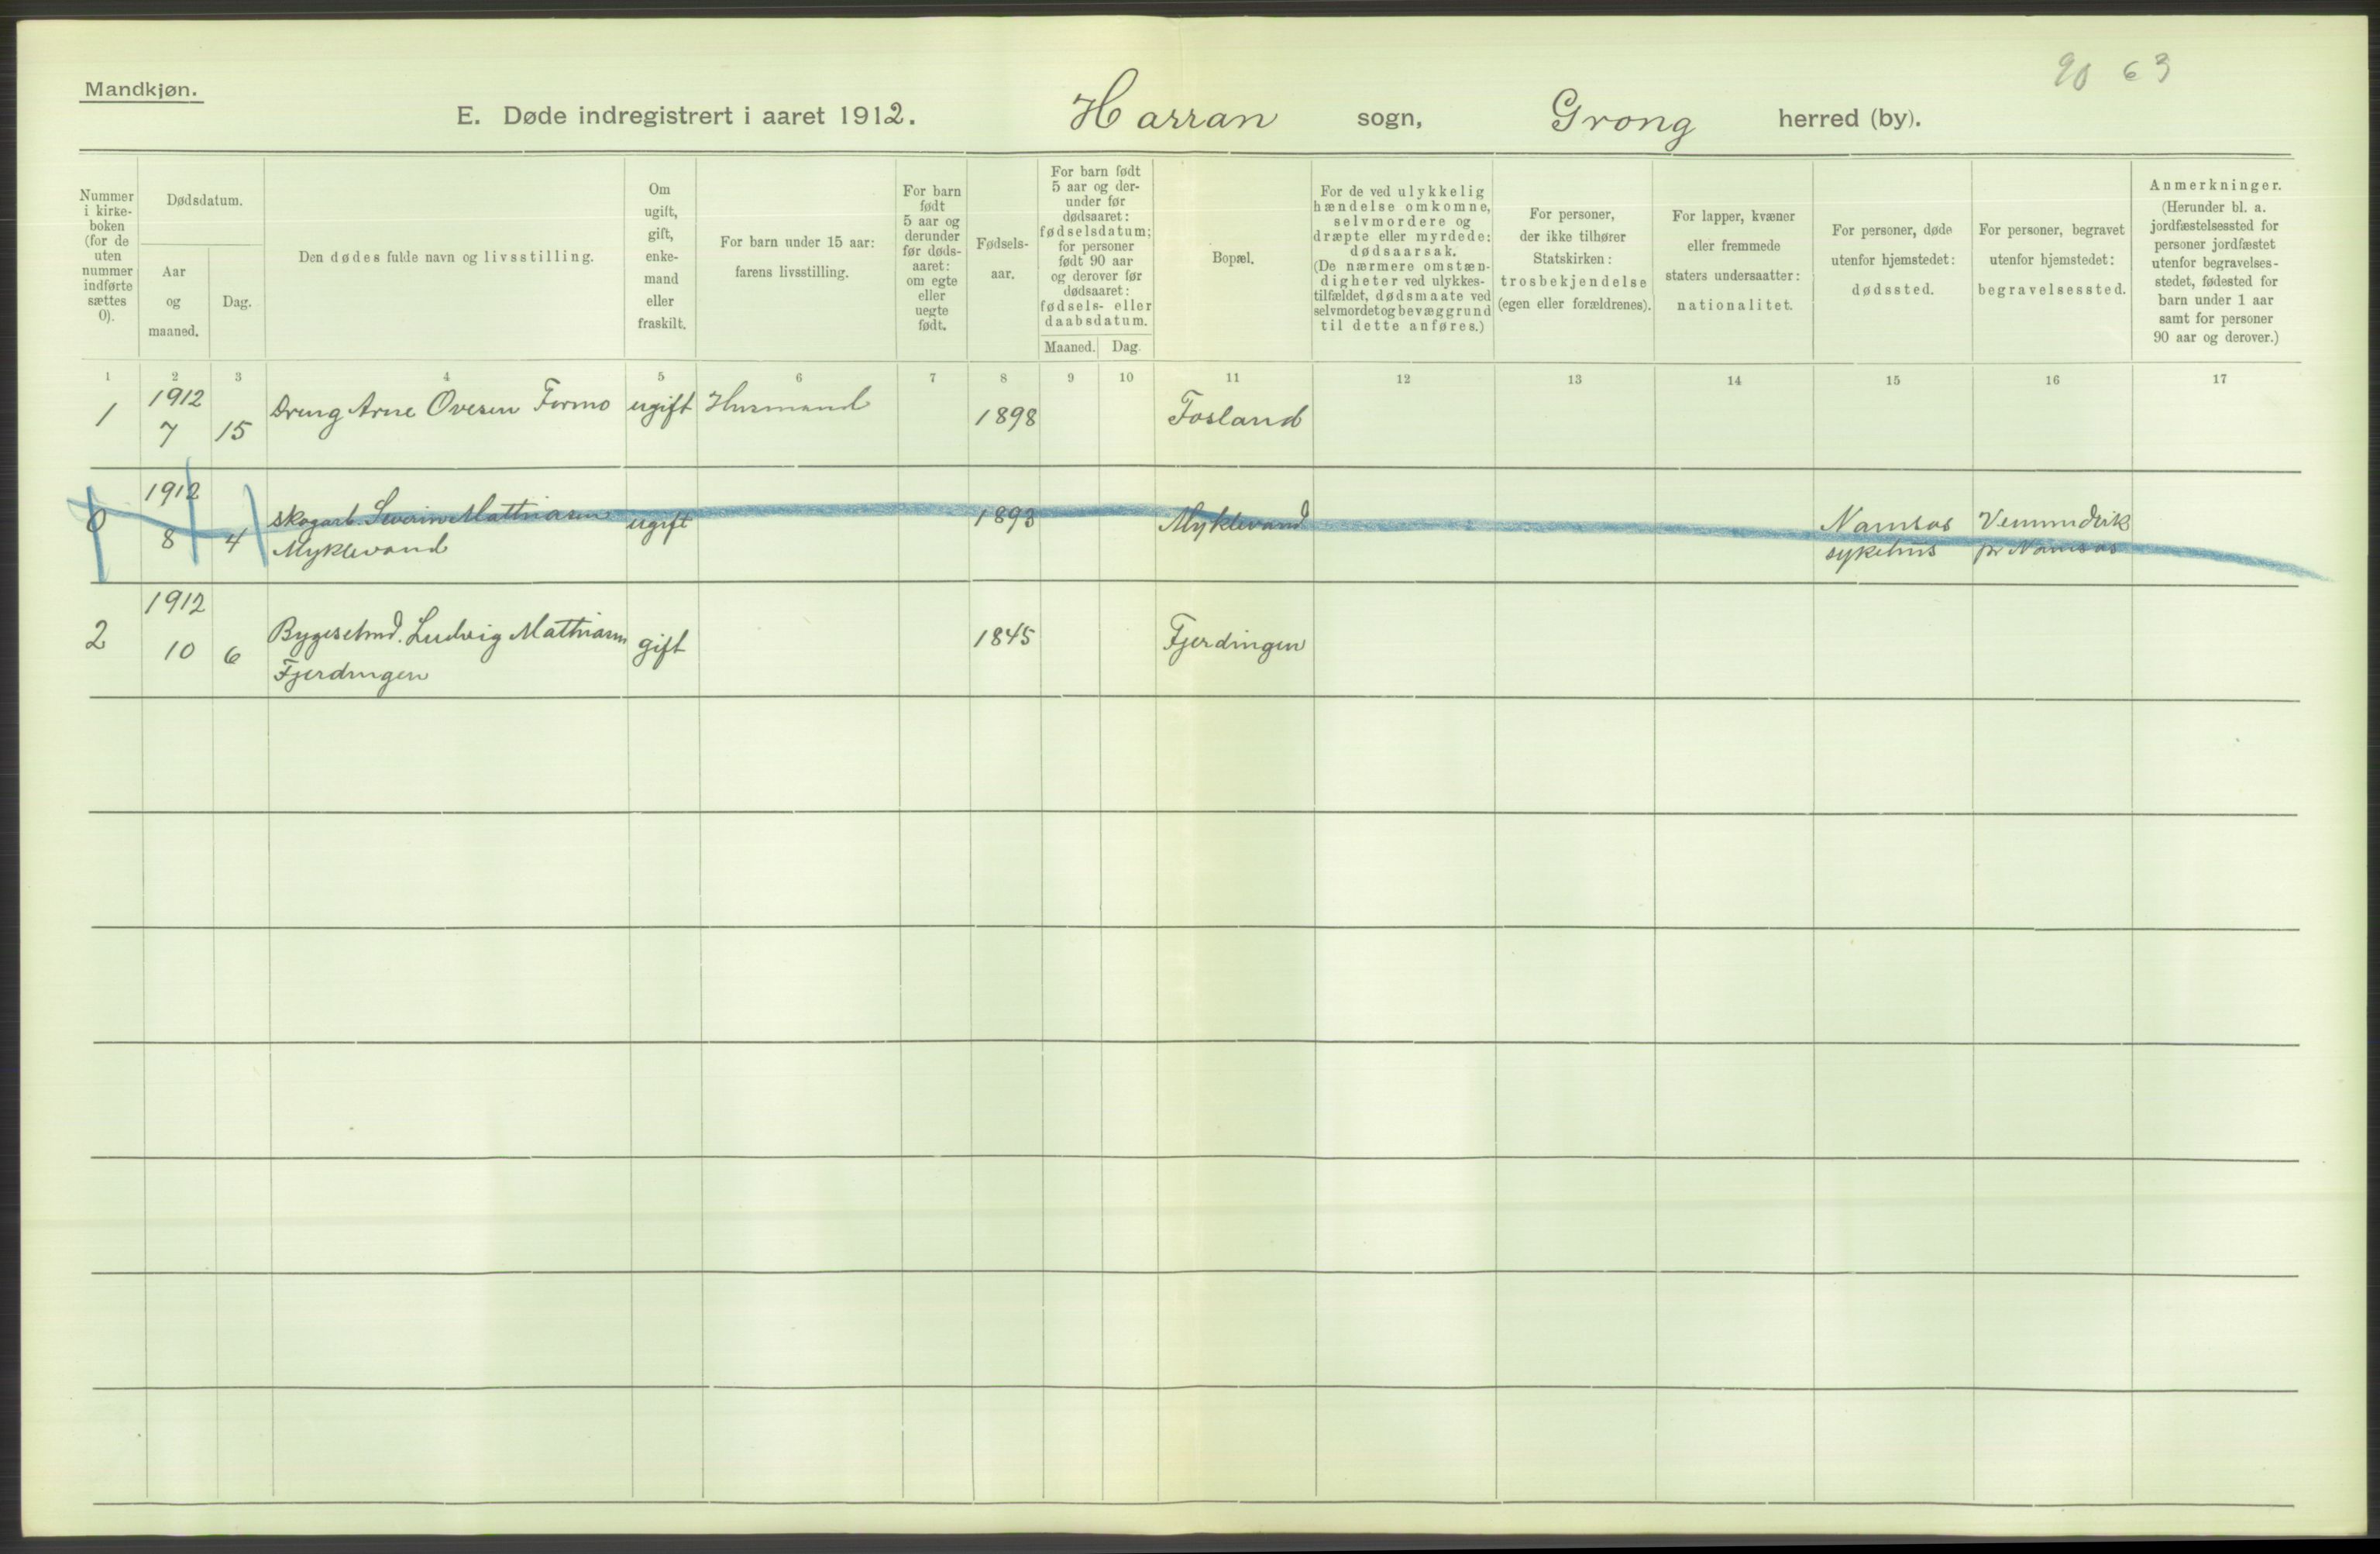 90 63
Mandkjøn.
E. Døde indregistrert i aaret 1912. Harran sogn, Grong herred (by).
Nummer
i kirke-
boken
(for de
uten
nummer
indførte
sættes
0).
Dødsdatum.
Aar
og
maaned.
Dag.
Den dødes fulde navn og livsstilling.
Om
ugift,
gift,
enke-
mand
eller
fraskilt.
For barn under 15 aar:
farens livsstilling.
For barn
født
5 aar og
derunder
før døds-
aaret:
om egte
eller
uegte
født.
Fødsels-
aar.
For barn født
5 aar og der-
under før
dødsaaret:
fødselsdatum;
for personer
født 90 aar
og derover før
dødsaaret:
fødsels- eller
daabsdatum.
Maaned. Dag.
Bopæl.
For de ved ulykkelig
hændelse omkomne,
selvmordere og
dræpte eller myrdede:
dødsaarsak.
(De nærmere omstæn-
digheter ved ulykkes-
tilfældet, dødsmaate ved
selvmordet og bevæggrund
til dette anføres.)
For personer,
der ikke tilhører
Statskirken:
trosbekjendelse
(egen eller forældrenes).
For lapper, kvæner
eller fremmede
staters undersaatter:
nationalitet.
For personer, døde
utenfor hjemstedet:
dødssted.
For personer, begravet
utenfor hjemstedet:
begravelsessted.
Anmerkninger.
(Herunder bl. a.
jordfæstelsessted for
personer jordfæstet
utenfor begravelses-
stedet, fødested for
barn under 1 aar
samt for personer
90 aar og derover.)
1 2 3 4 5 6 7 8 9 10 11 12 13 14 15 16 17
1912
1 7 15 Dreng Arne Ovesen Formo ugift Husmand 1898 Fosland
1912
0 8 4 skogarb. Severin Mathiasen ugift 1893 Myklevand Namsos Vemundvik
Myklevand sykehus pr Namsos
1912
2 10 6 Bygselmd. Ludvig Mathiasen gift 1845 Fjerdingen
Fjerdingen